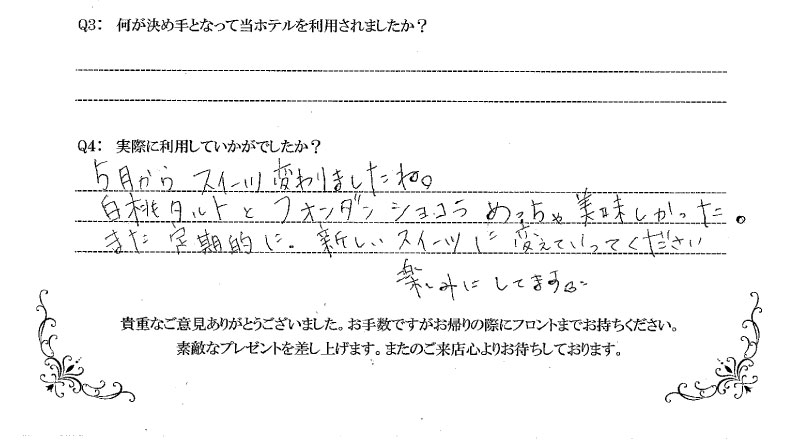 Q3: 何が決め手となって当ホテルを利用されましたか？
Q4: 実際に利用していかがでしたか？
5月から スイーツ変わりましたね。
白桃タルトと フォンダンショコラ めっちゃ美味しかった。
また 定期的に。新しいスイーツに 変えていってください
楽しみに してます
貴重なご意見ありがとうございました。お手数ですがお帰りの際にフロントまでお持ちください。
素敵なプレゼントを差し上げます。またのご来店心よりお待ちしております。